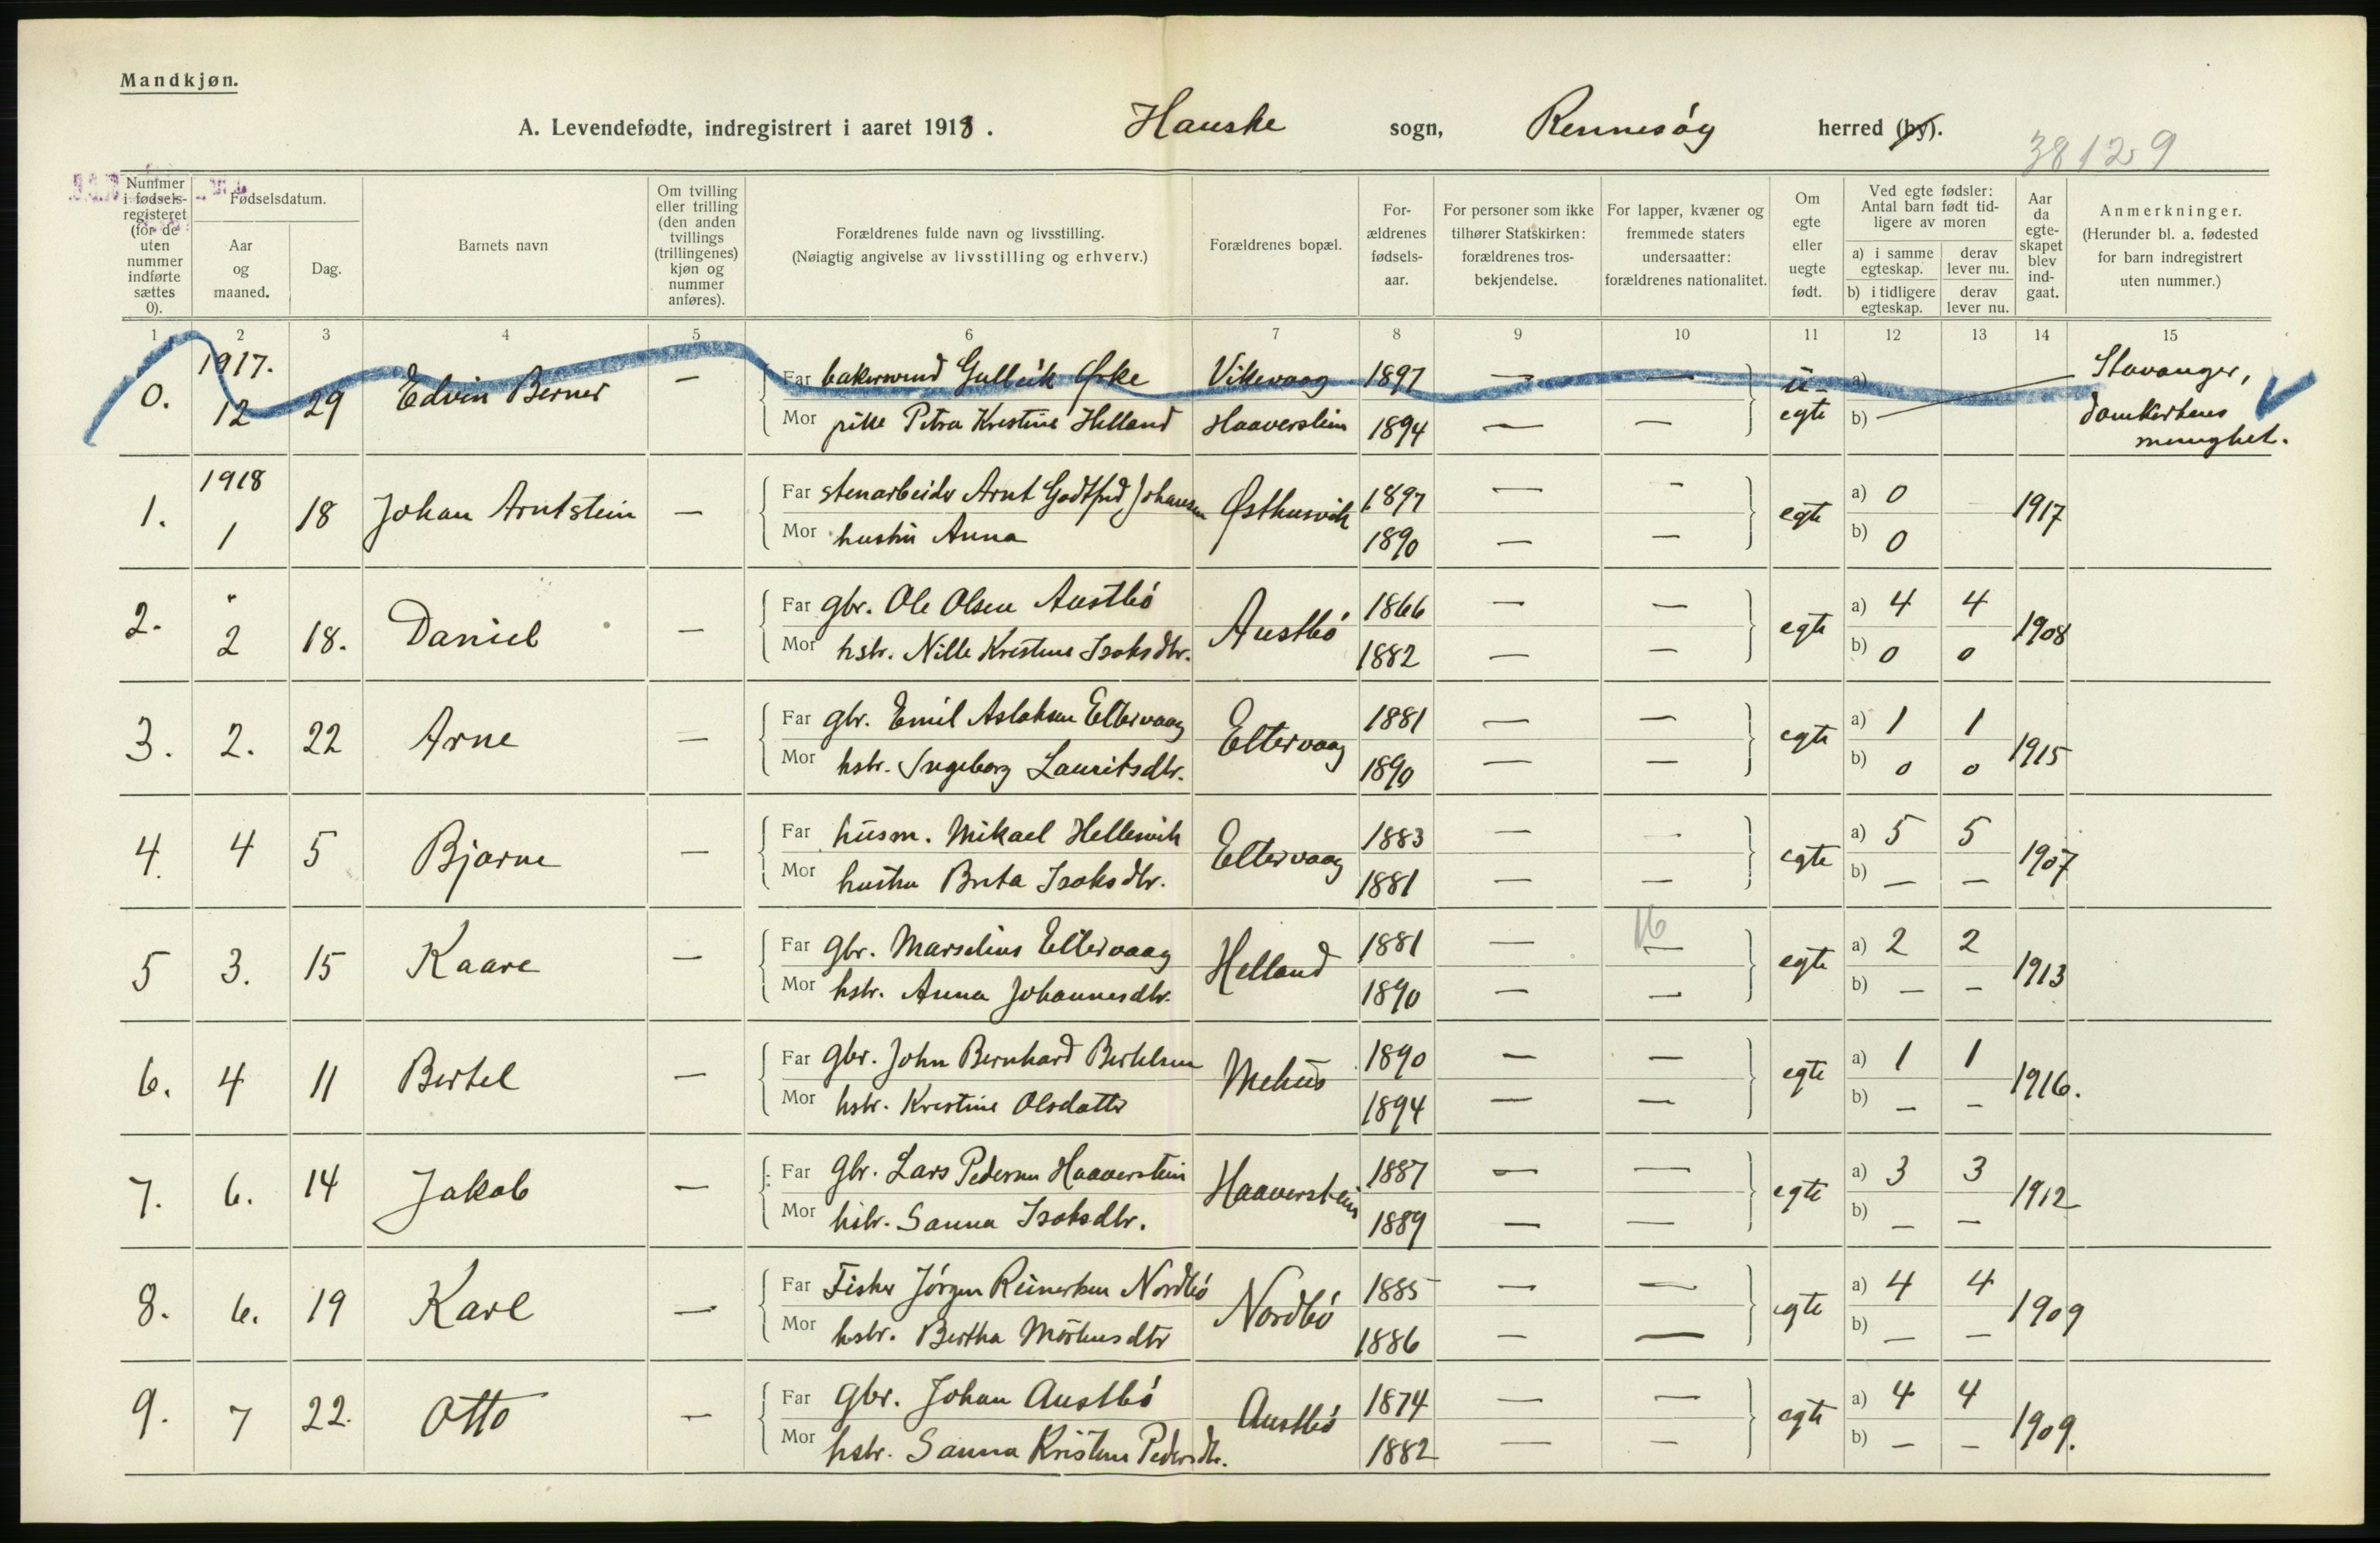 Mandkjøn.
A. Levendefødte, indregistrert i aaret 1918. Hauske sogn, Rennesøy herred (by).
38129
Nummer i fødselsregisteret (for de uten nummer indførte sættes 0).
Fødselsdatum.
Aar og maaned.
Dag.
Barnets navn
Om tvilling eller trilling (den anden tvillings (trillingenes) kjøn og nummer anføres).
Forældrenes fulde navn og livsstilling.
(Nøiagtig angivelse av livsstilling og erhverv.)
Forældrenes bopæl.
Forældrenes fødselsaar.
For personer som ikke tilhører Statskirken: forældrenes trosbekjendelse.
For lapper, kvæner og fremmede staters undersaatter: forældrenes nationalitet.
Om egte eller uegte født.
Ved egte fødsler: Antal barn født tidligere av moren
a) i samme egteskap. derav lever nu.
b) i tidligere egteskap. derav lever nu.
Aar da egteskapet blev indgaat.
Anmerkninger.
(Herunder bl. a. fødested for barn indregistrert uten nummer.)
1 2 3 4 5 6 7 8 9 10 11 12 13 14 15
0. 1917. 12 29 Edvin Berner — Far bakersvend Gulleik Øske Vikevaag 1897 — — u- a) Stavanger,
Mor pike Petra Kristine Helland Haaverstein 1894 — — egte b) — domkirkens
menighet.
1. 1918 1 18 Johan Arntstein — Far stenarbeider Arnt Godtfred Johansen Østhusvik 1897 — - egte a) 0 1917
Mor hustru Anna 1890 — — b) 0
2. " 2 18. Daniel — Far gbr. Ole Olsen Austbö Austbö 1866 — — egte a) 4 4 1908
Mor hstr. Nille Kristine Isaksdtr. 1882 — — b) 0 0
3. 2. 22 Arne — Far gbr. Emil Aslaksen Eltervaag Eltervaag 1881 — — egte a) 1 1 1915
Mor hstr. Ingeborg Lauritsdtr. 1890 — — b) 0 0
4. 4 5 Bjarne — Far husm. Mikael Hellesvik Eltervaag 1883 — — egte a) 5 5 1907
Mor hustru Brita Isaksdtr. 1881 — — b) — —
16
5 3. 15 Kaare — Far gbr. Marselius Eltervaag Helland 1881 — — egte a) 2 2 1913
Mor hstr. Anna Johannesdtr. 1890 — — b) — —
6. 4 11 Bertel — Far gbr. John Bernhard Bertelsen Mehus 1890 — — egte a) 1 1 1916.
Mor hstr. Kristine Olsdatter 1894 — — b) — —
7. 6. 14 Jakob — Far gbr. Lars Pedersen Haaverstein Haaverstein 1887 — — egte a) 3 3 1912
Mor hstr. Sanna Isaksdtr. 1889 — — b) — —
8. 6. 19 Karl — Far Fisker Jörgen Reinertsen Nordbö Nordbö 1885 — — egte a) 4 4 1909
Mor hstr. Bertha 1886 — — b) — —
9. 7 22. Otto — Far gbr. Johan Austbö Austbö 1874 — — egte a) 4 4 1909.
Mor hstr. Sanna Kristine Pedersdtr. 1882 — — b) — —